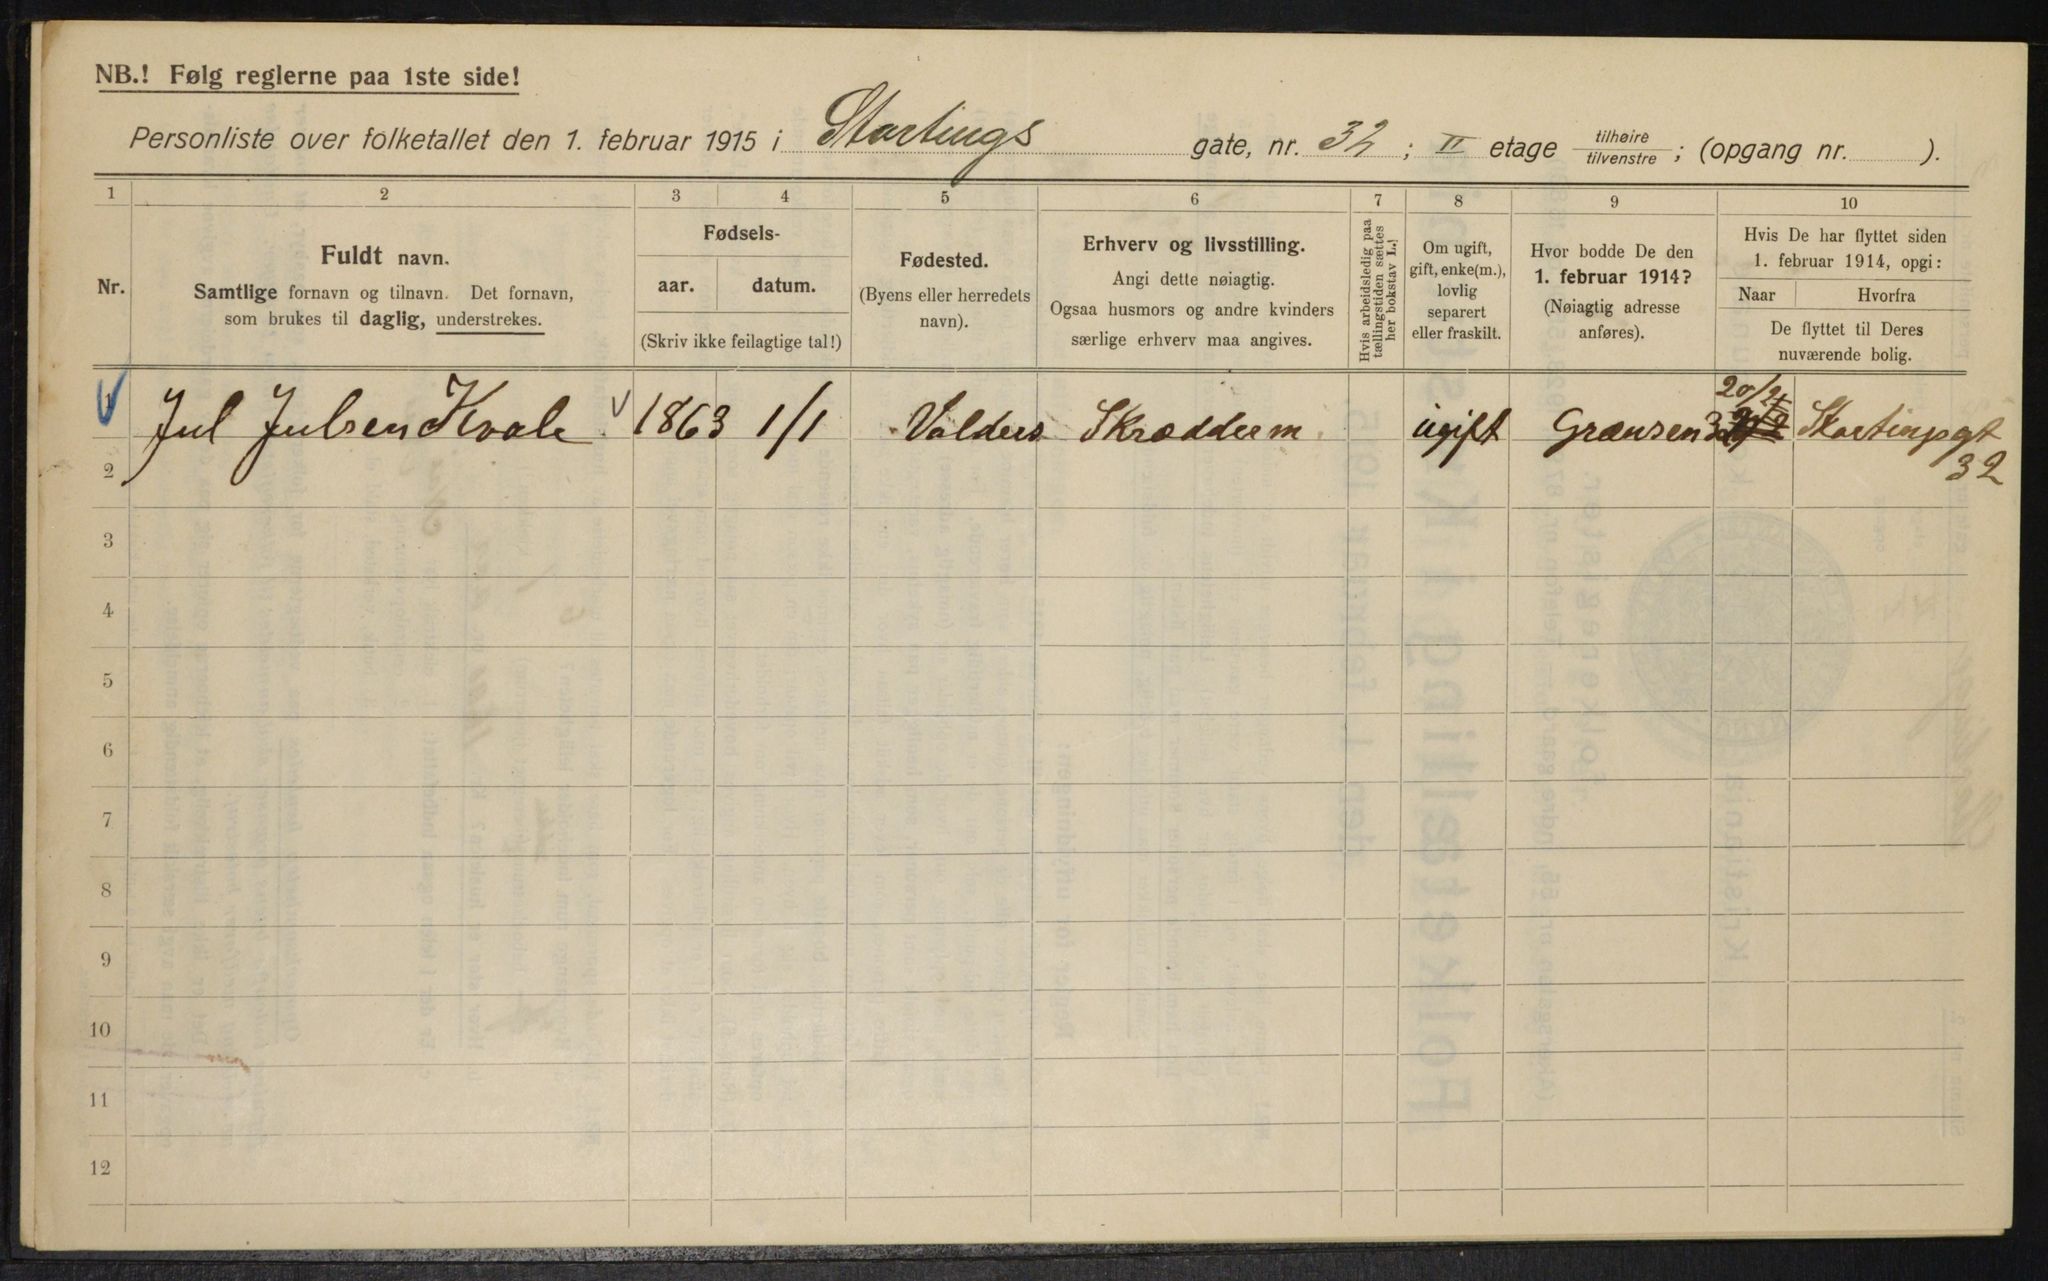 NB.! Følg reglerne paa 1ste side!
Personliste over folketallet den 1. februar 1915 i Stortings gate, nr. 32 ; II etage tilhøire / tilvenstre ; (opgang nr. ).
1 2 3 4 5 6 7 8 9 10
Nr.
Fuldt navn.
Samtlige fornavn og tilnavn. Det fornavn,
som brukes til daglig, understrekes.
Fødsels-
aar. datum.
(Skriv ikke feilagtige tal!)
Fødested.
(Byens eller herredets
navn).
Erhverv og livsstilling.
Angi dette nøiagtig.
Ogsaa husmors og andre kvinders
særlige erhverv maa angives.
Hvis arbeidsledig paa
tællingstiden sættes
her bokstav L.!
Om ugift,
gift, enke(m.),
lovlig
separert
eller fraskilt.
Hvor bodde De den
1. februar 1914?
(Nøiagtig adresse
anføres).
Hvis De har flyttet siden
1. februar 1914, opgi:
Naar Hvorfra
De flyttet til Deres
nuværende bolig.
1 Jul Julsen Kvale 1863 1/1 Valders Skrædderm. ugift Grænsen Stortingsgt
32
2
3
4
5
6
7
8
9
10
11
12